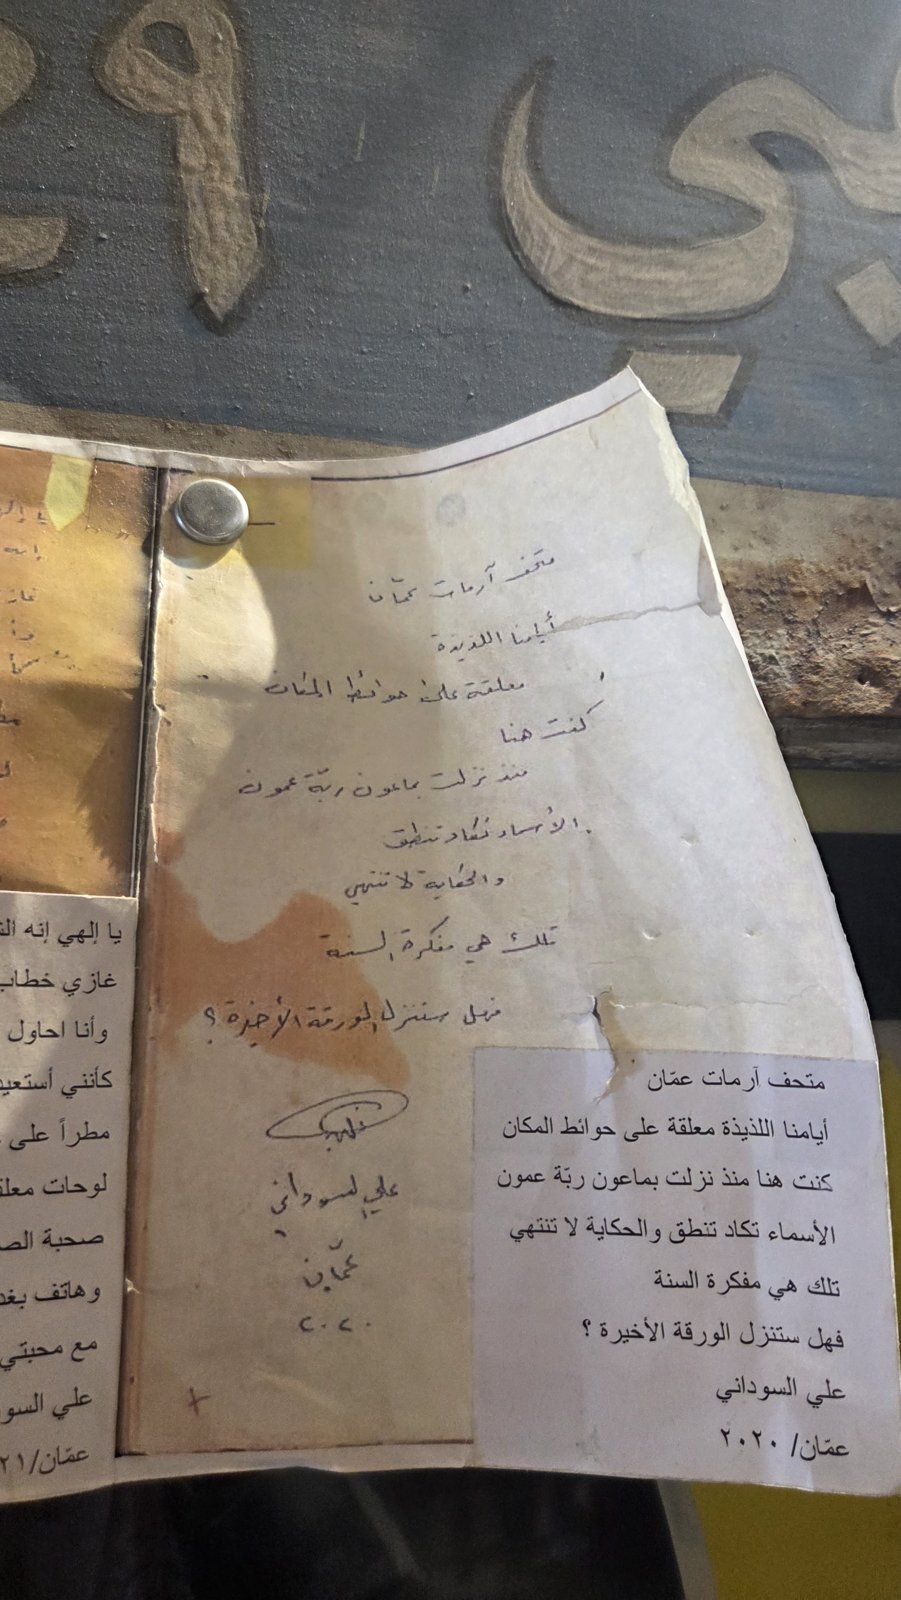 بي ٩
متحف آرمات عمّان
أيامنا اللذيذة
معلقة على حوائط المكان
كنت هنا
منذ نزلت بماعون ربّة عمون
الأسماء تكاد تنطق
والحكاية لا تنتهي
تلك هي مفكرة السنة
فهل ستنزل الورقة الأخيرة ؟
علي السوداني
عمّان
٢٠٢٠
متحف آرمات عمّان
أيامنا اللذيذة معلقة على حوائط المكان
كنت هنا منذ نزلت بماعون ربّة عمون
الأسماء تكاد تنطق والحكاية لا تنتهي
تلك هي مفكرة السنة
فهل ستنزل الورقة الأخيرة ؟
علي السوداني
عمّان/ ٢٠٢٠
يا إلهي إنه
غازي خطاب
وأنا احاول
كأنني أستعيد
مطراً على
لوحات
صحبة
وهاتف
مع محبتي
علي
عمّان/